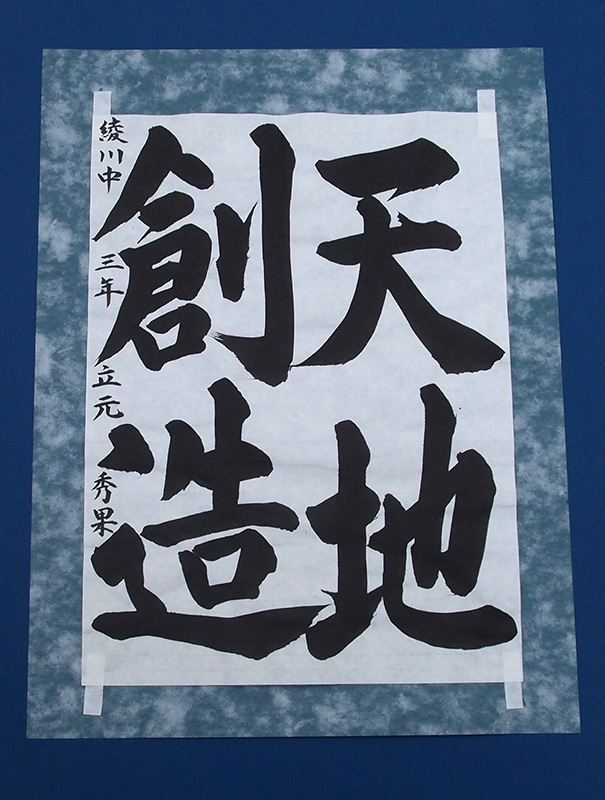 天地
創造
綾川中 三年 立元 秀果